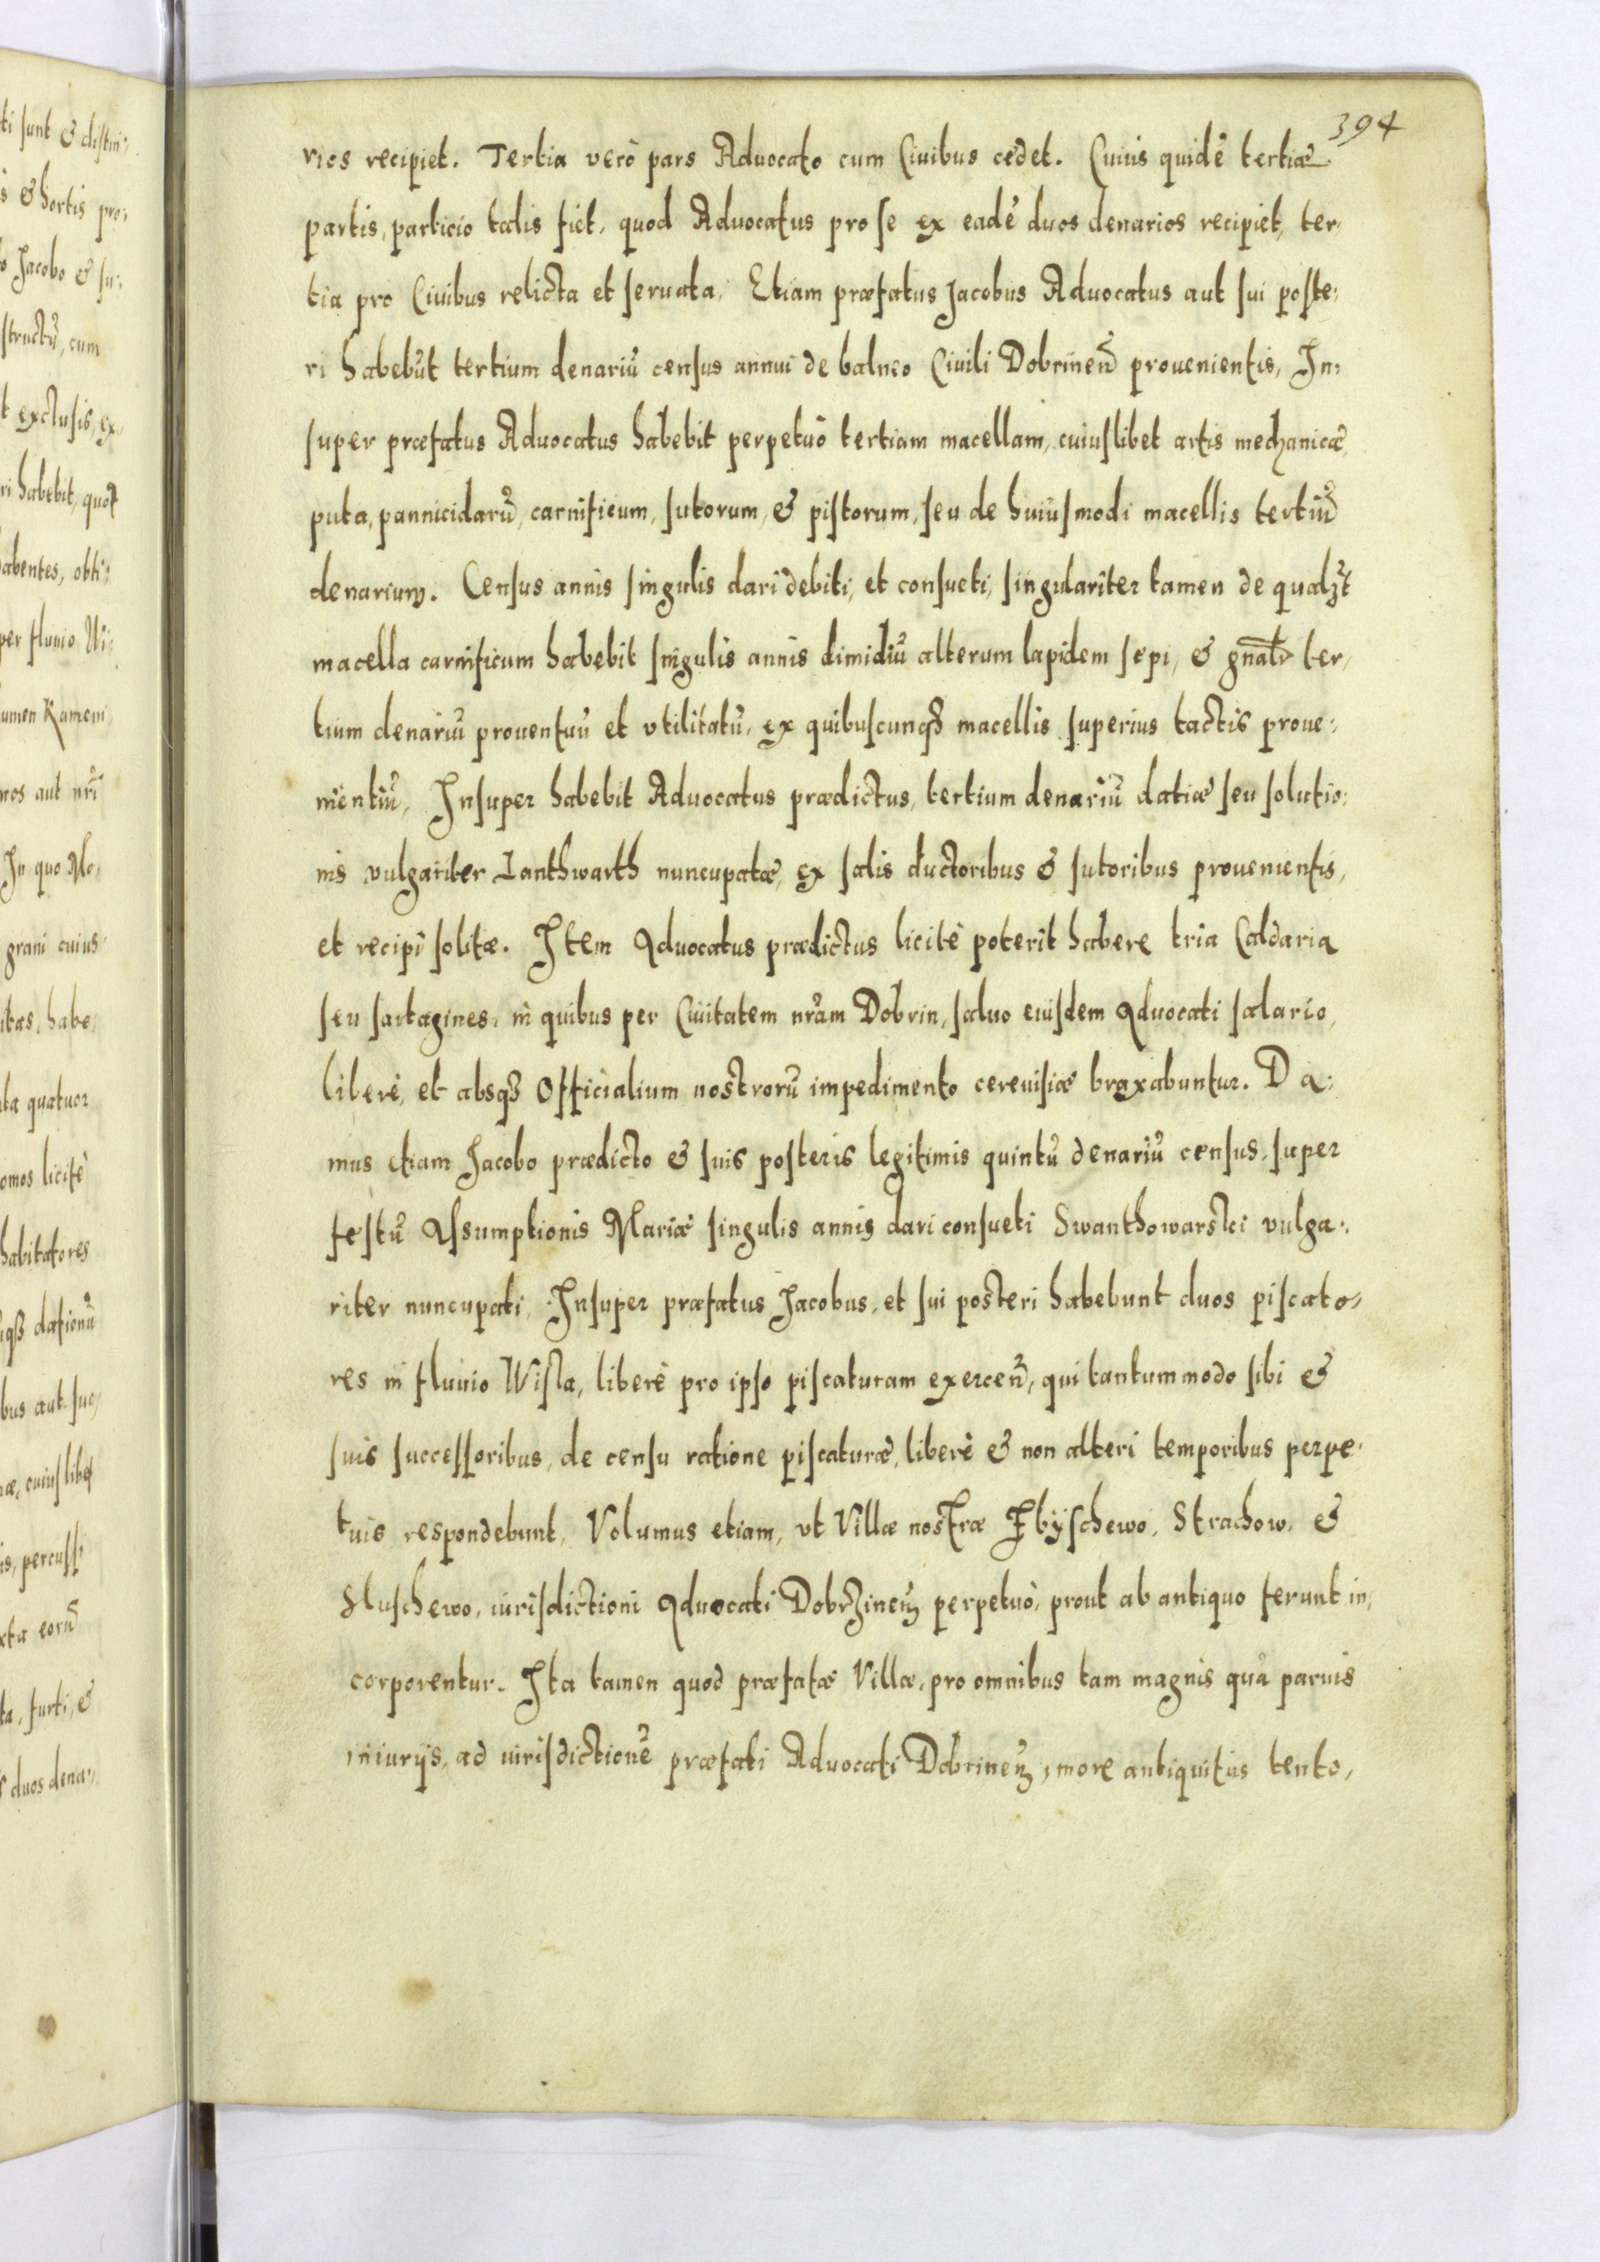 394
rios recipiet. Tertia verò pars Aduocato cum Ciuibus cedet. Cuius quidē tertiæ
partis, particio talis fiet, quod Aduocatus pro se ex eadē duos denarios recipiet, ter,
tia pro Ciuibus relicta et seruata, Etiam præfatus Jacobus Aduocatus aut sui poste,
ri habebūt tertium denariū census annui de balneo Ciuili Dobrineñ prouenientis, In,
super præfatus Aduocatus habebit perpetuò tertiam macellam, cuiuslibet artis mechanicæ,
puta, pannicidarū, carnificum, sutorum, & pistorum, seu de huiusmodi macellis tertiū
denarium. Census annis singulis dari debiti, et consueti, singulariter tamen de qualꝫt
macella carnificum habebit singulis annis dimidiū alterum lapidem sepi, & gnalr ter,
tium denariū prouentuū et vtilitatū, ex quibuscunqꝫ macellis superius tactis proue,
nientiū, Insuper habebit Aduocatus prædictus, tertium denariū datiæ seu solutio,
nis vulgariter Lanthwarth nuncupatæ, ex salis ductoribus & sutoribus prouenientis,
et recipi solitæ. Item Aduocatus prædictus licitè poterit habere tria Caldaria
seu sartagines, in quibus per Ciuitatem nr̄am Dobrin, saluo eiusdem Aduocati salario,
liberè, et absqꝫ Officialium nostrorū impedimento cereuisiæ braxabuntur. Da,
mus etiam Jacobo prædicto & suis posteris legitimis quintū denariū census, super
festū Assumptionis Mariæ singulis annis dari consueti Swanthowarsski vulga,
riter nuncupati, Insuper præfatus Jacobus, et sui posteri habebunt duos piscato,
res in fluuio Wisla, liberè pro ipso piscaturam exerceñ, qui tantummodo sibi &
suis successoribus, de censu ratione piscaturæ, liberè & non alteri temporibus perpe,
tuis respondebunt, Volumus etiam, vt Villæ nostræ Zbyschewo, Strachow, &
Sluschewo, iurisdictioni Aduocati Dobrzineñ perpetuò, prout ab antiquo ferunt in,
corporentur. Ita tamen quod præfatæ Villæ, pro omnibus tam magnis quā paruis
iniurijs, ad iurisdictionē præfati Aduocati Dobrineñ, more antiquitus tento,